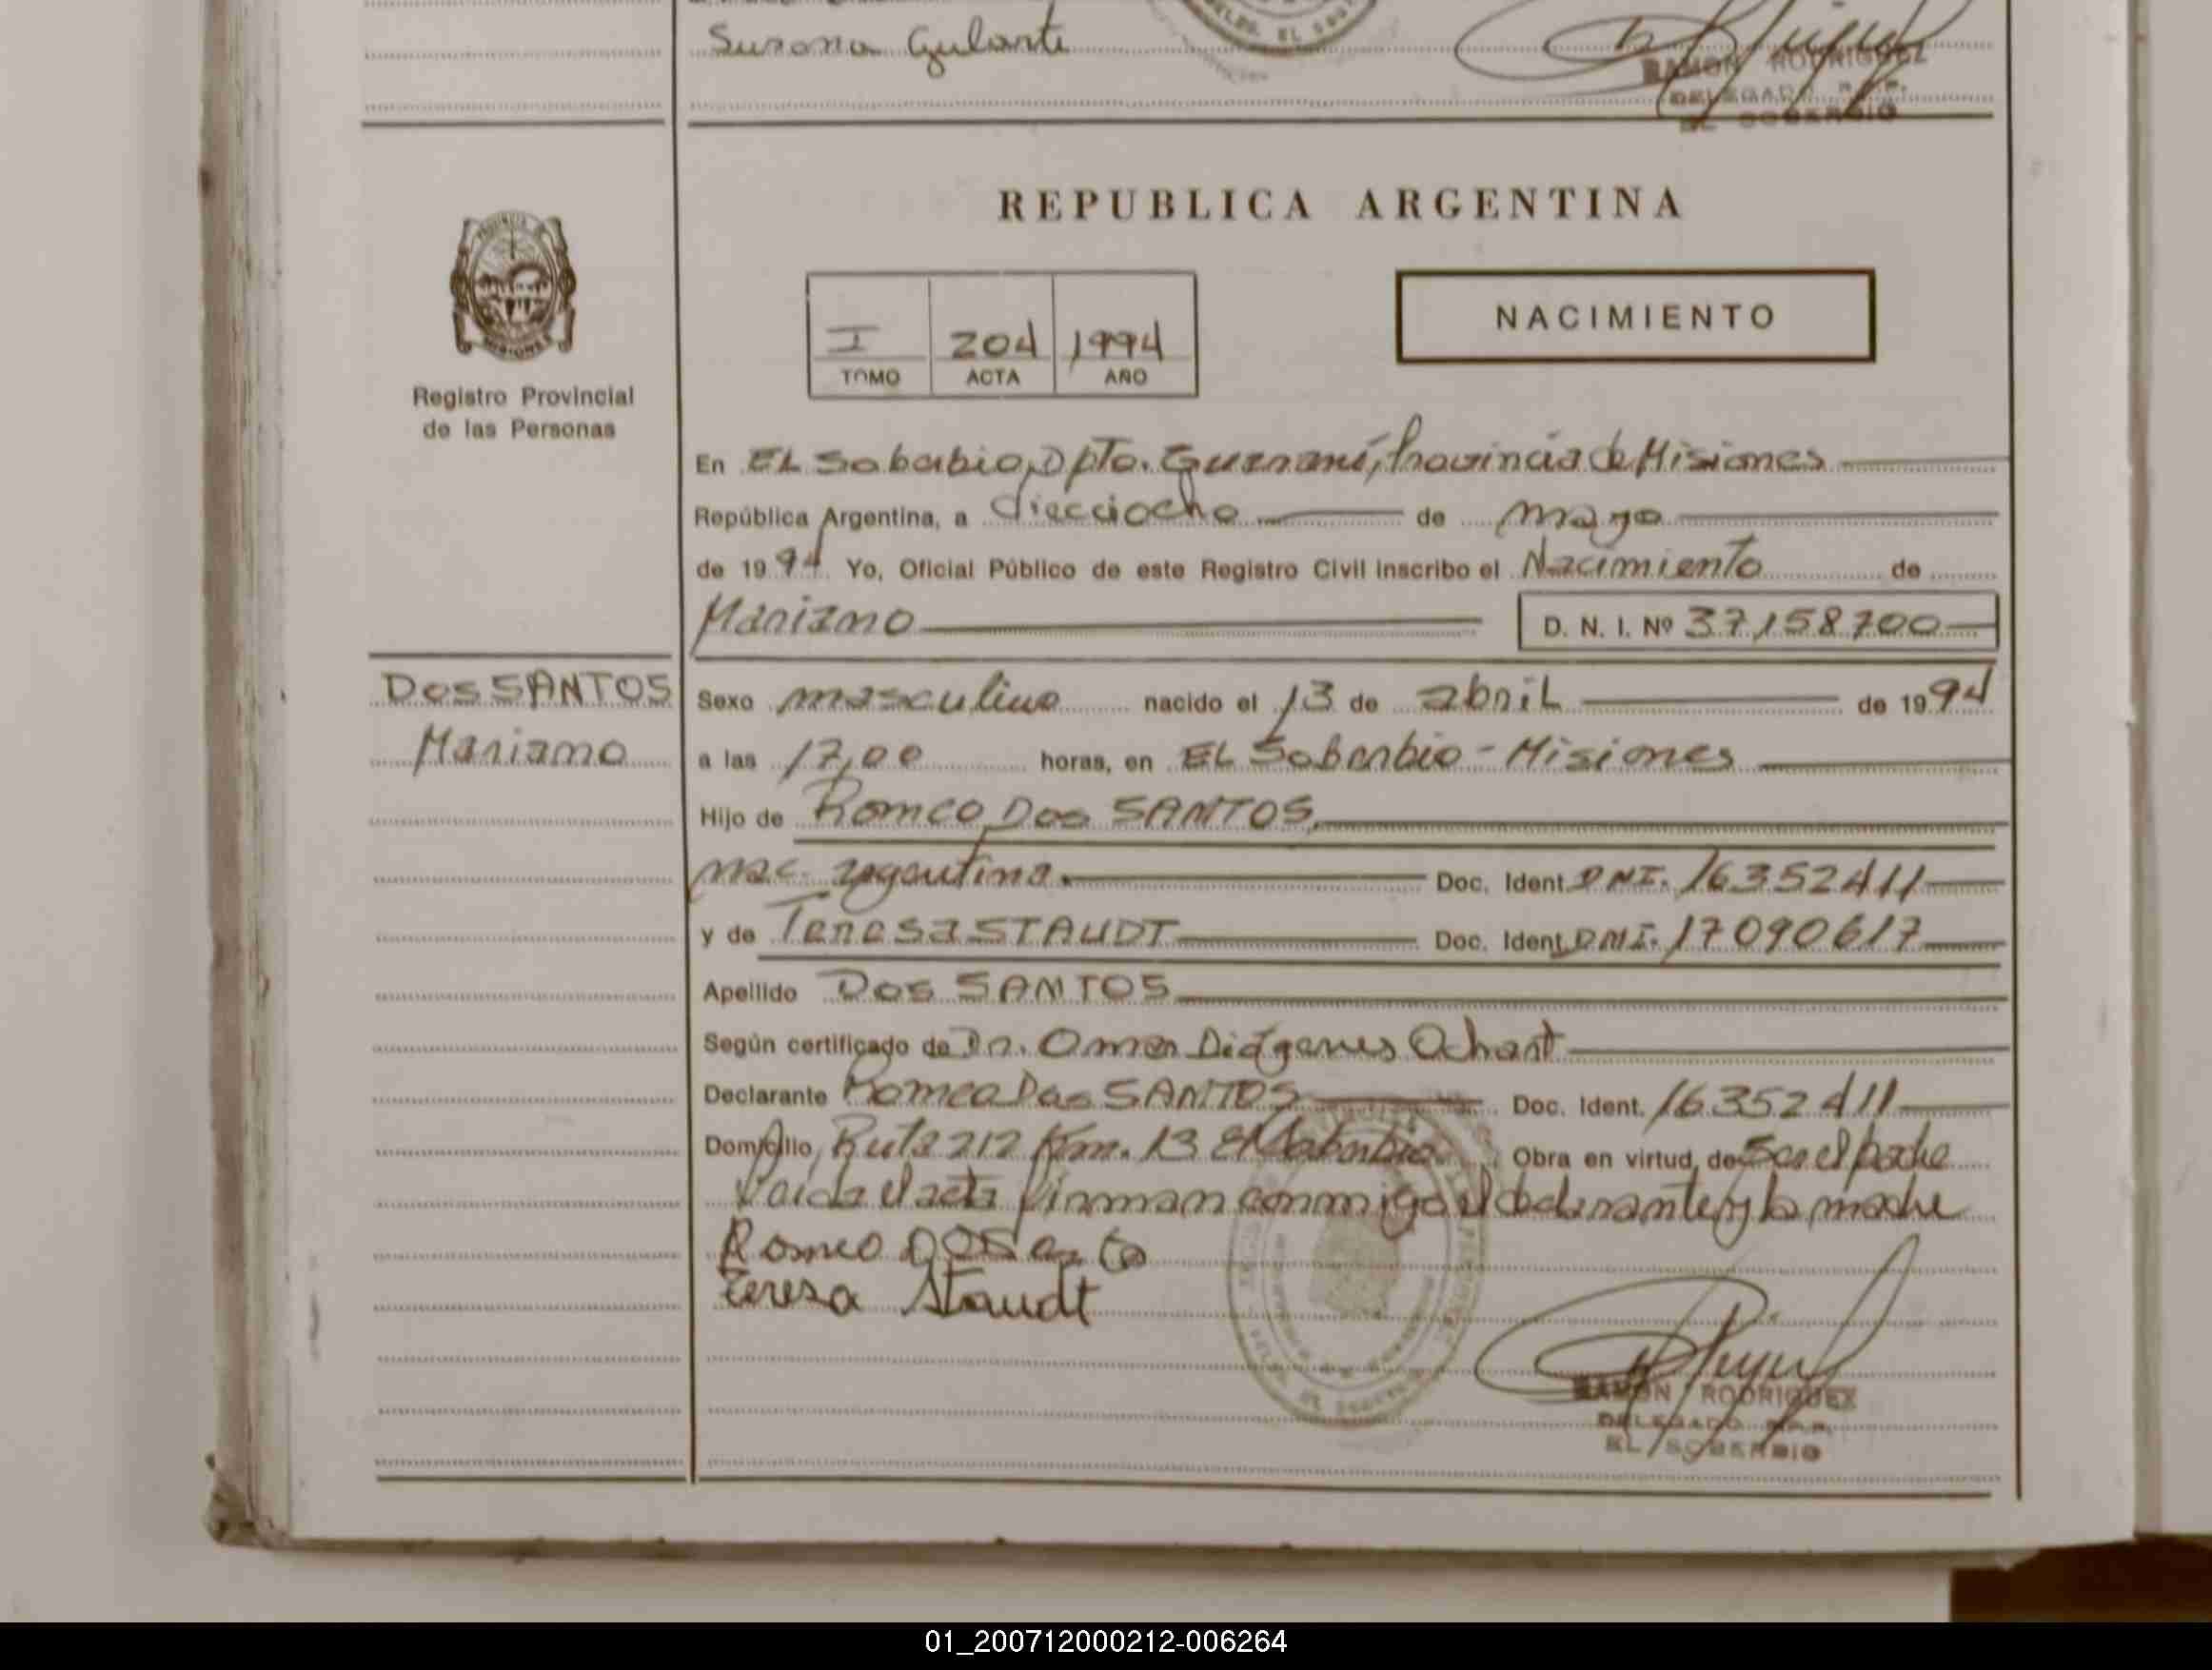 Susana Gularte
RAMON RODRIGUEZ
DELEGADO R.P.P.
EL SOBERBIO
REPUBLICA ARGENTINA
NACIMIENTO
I 204 1994
TOMO ACTA AÑO
Registro Provincial
de las Personas
En EL Soberbio, Dpto. Guaraní, Provincia de Misiones
República Argentina, a diecciocho de mayo
de 1994 Yo, Oficial Público de este Registro Civil inscribo el Nacimiento de
Mariano D. N. I. Nº 37,158700
Dos SANTOS
Mariano
Sexo masculino nacido el 13 de abril de 1994
a las 17,00 horas, en EL Soberbio - Misiones
Hijo de Romeo Dos SANTOS,
nac. argentina. Doc. Ident DNI. 16352411
y de Teresa STAUDT Doc. Ident DNI. 17090617
Apellido Dos SANTOS
Según certificado de Dr. Omar Diógenes
Declarante Romeo Dos SANTOS Doc. Ident. 16352411
Domicilio, Ruta 212 Km. 13 El Soberbio Obra en virtud de Ser el padre
Leida el acta firman conmigo el declarante y la madre
Romeo
Teresa Staudt
RAMON RODRIGUEZ
DELEGADO R.P.P.
EL SOBERBIO
01_200712000212-006264